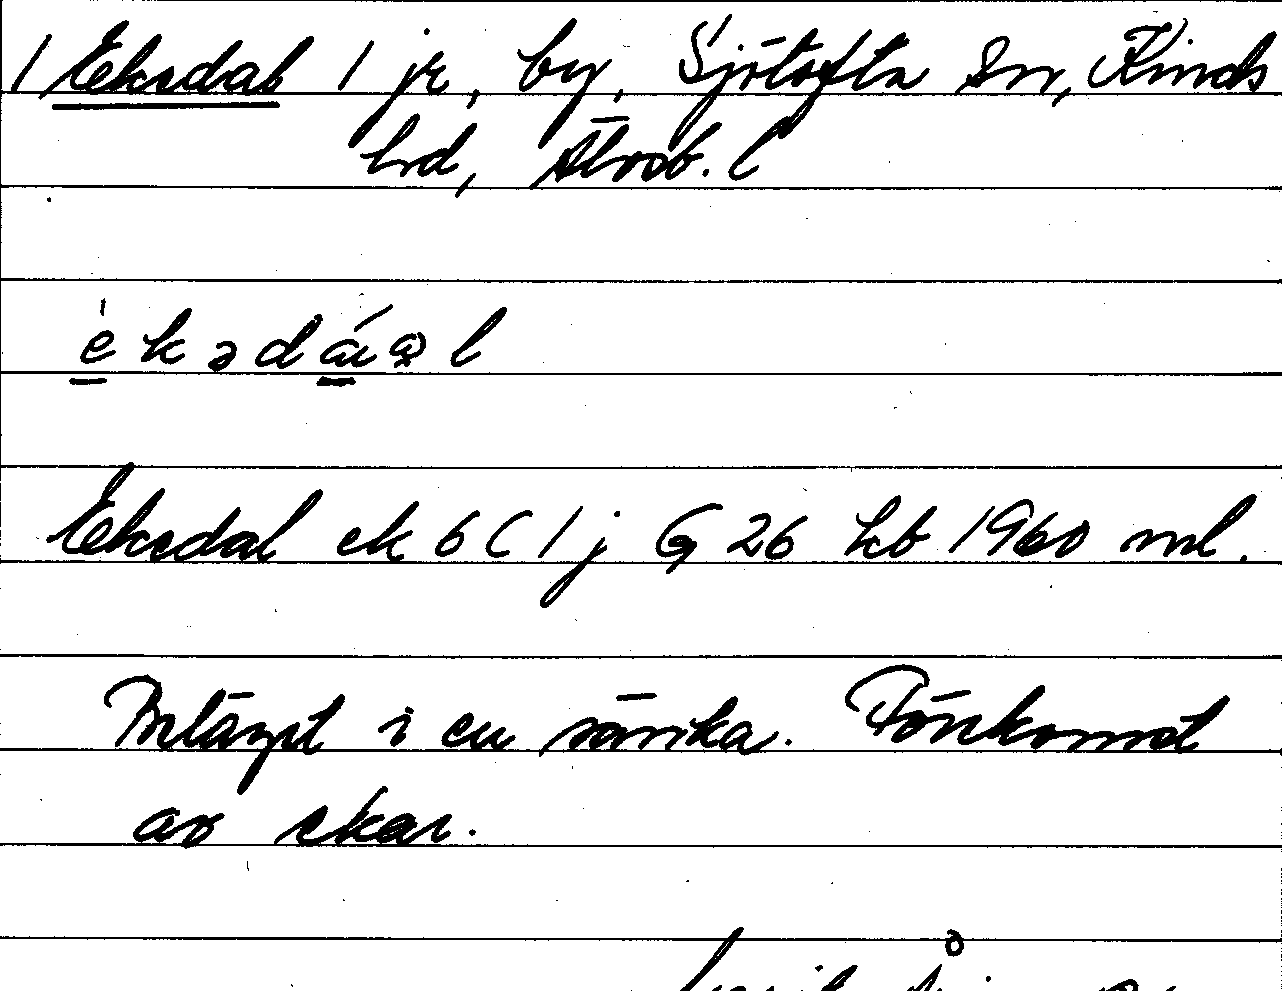 / Ekedal 1 jr, by, Sjötofta sn, Kinds
hrd, Älvsb. l
Ekedal ek 6 C 1 j G 26 kb 1960 ml.
Beläget i en sänka. Förekomst
av ekar.